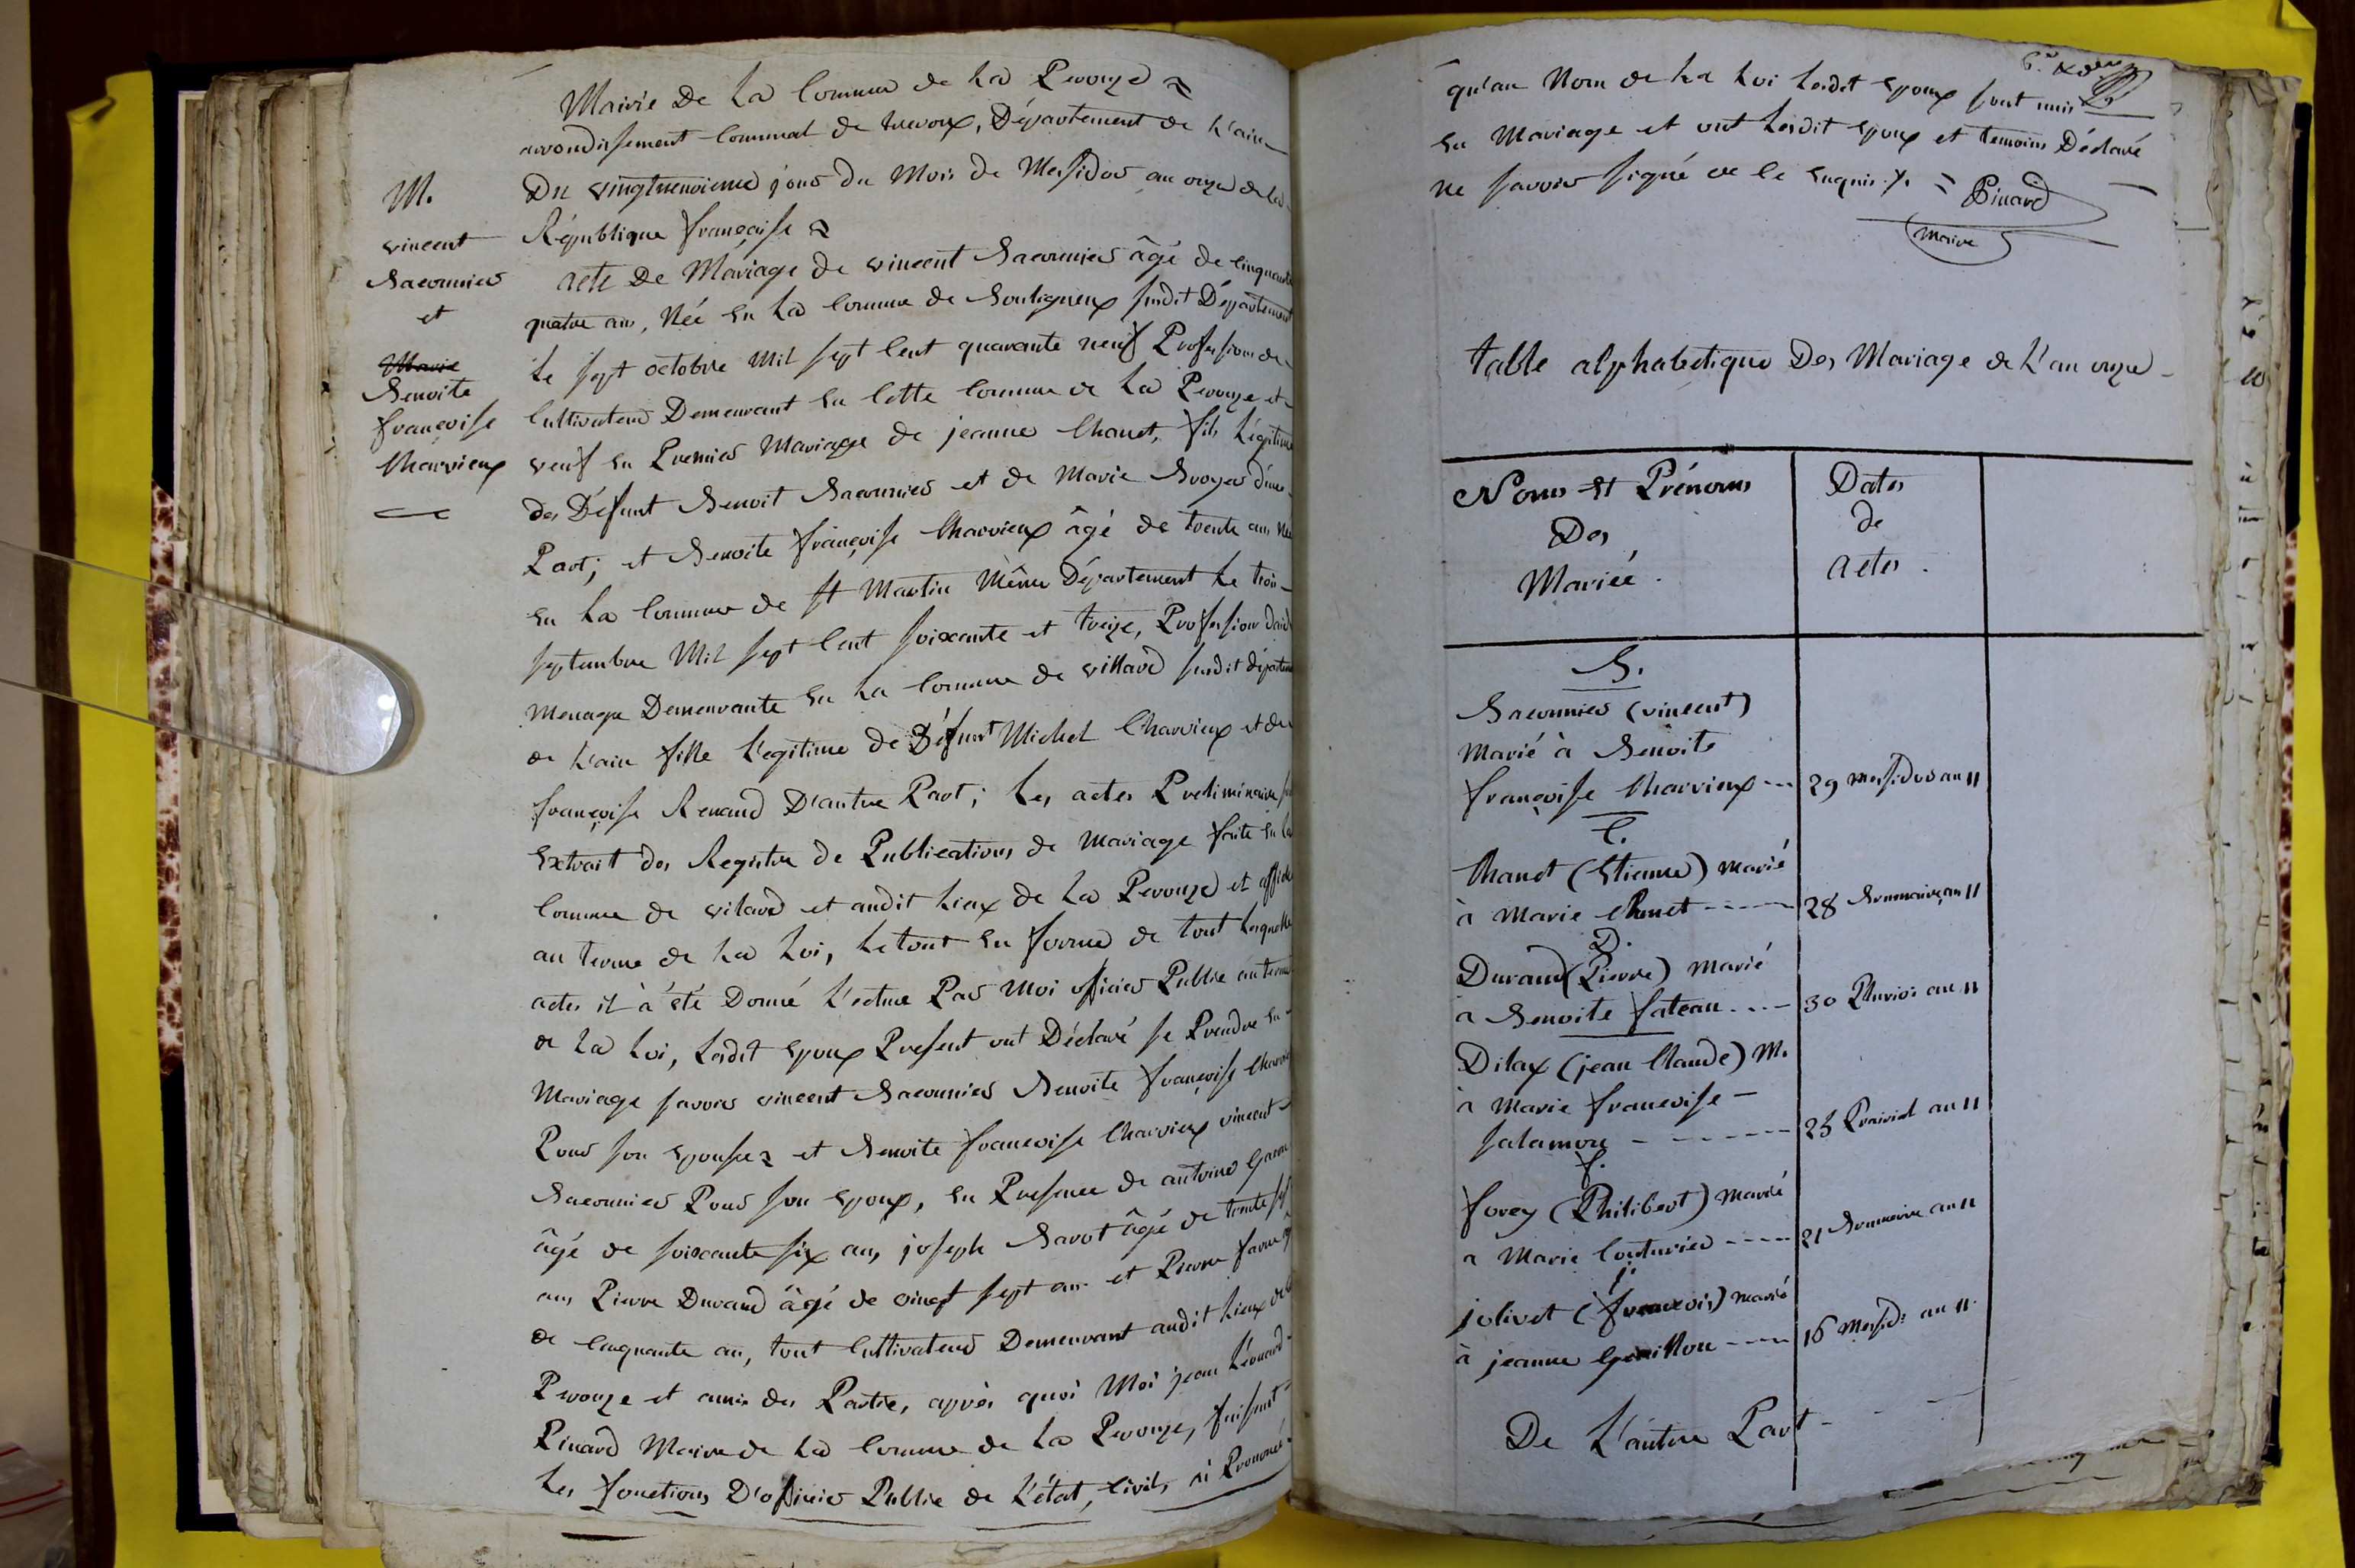 Mairie De La Commune de La Perouze
arrondissement Communal de trevoux, Département de L'ain
Du vingtneuvieme jour du Mois de Messidor an onze de la
République françoise
M.
vincent
Baconnier
et
Marie
Benoite
françoise
Charvieux
acte De Mariage de vincent Baconnier âgé de Cinquante
quatre ans, Née En La Commune de Souligneux susdit Département
Le sept octobre Mil sept Cent quarante neuf Profession de
Cultivateur Demeurant En Cette Commune de La Perouze et
veuf En Premier Mariage de jeanne Chanet, fils Légitime
des Défunt Benoit Baconnier et de Marie Broyer d'une
Part; et Benoite françoise Charvieux âgé de trente ans Née
En La Commune de St Martin Même Département Le trois
septembre Mil sept Cent soixante et treize, Profession de
menage Demeurante En La Commune de villard susdit département
de L'ain fille L'egitime de Défunt Michel Charvieux et de
françoise Renaud D'autre Part; Les actes Preliminaire
Extrait des Registre de Publications de Mariage faite En La
Commune de vilard et audit Lieux de La Perouze et affiché
au terme de La Loi, Le tout En forme de tout Lesquelle
actes il à été Donné L'ecture Par Moi officier Public au terme
de La Loi, Lesdit Epoux Present ont Déclaré se Prendre En
Mariage savoir vincent Baconnier Benoite françoise Charvieux
Pour son Epouse et Benoite françoise Charvieux vincent
Baconnier Pour son Epoux, En Presence de antoine
âgé de soixante six ans, joseph Savot âgé de trente sept
ans, Pierre Durand âgé de vingt sept ans et Pierre favre âgé
de Cinquante an, tout Cultivateur Demeurant audit Lieux de La
Perouze et amis des Partie, après quoi Moi jean Léonard
Pinard Maire de La Commune de La Perouze, faisant
Les fonctions D'officier Public de L'état, Civil, ai Prononcé
6.e
qu'au Nom de La Loi Lesdit Epoux sont unis
En Mariage et ont Lesdit Epoux et temoins Déclaré
ne savoir signé de Ce Enquis. = Pinard
Maire
table alphabetique Des Mariage de L'an onze
Noms Et Prénoms
Des
Mariée.
Dates
de
actes.
B.
Baconnier (vincent)
Marié à Benoite
françoise Charvieux --- 29 Messidor an 11
C.
Chanet (Etienne) marié
à Marie Chanet ----- 28 Brumaire, an 11
D.
Durand (Pierre) marié
à Benoite fateau ---- 30 Pluviôs an 11
Dilax (jean Claude) M.
à Marie françoise -
salamon ------- 25 Prairial an 11
f.
forey (Philibert) marié
à Marie Couturier ---- 21 Brumaire an 11
j.
jolivet (françois) marié
à jeanne Grenillon ---- 16 Messid: an 11.
De L'autre Part - -